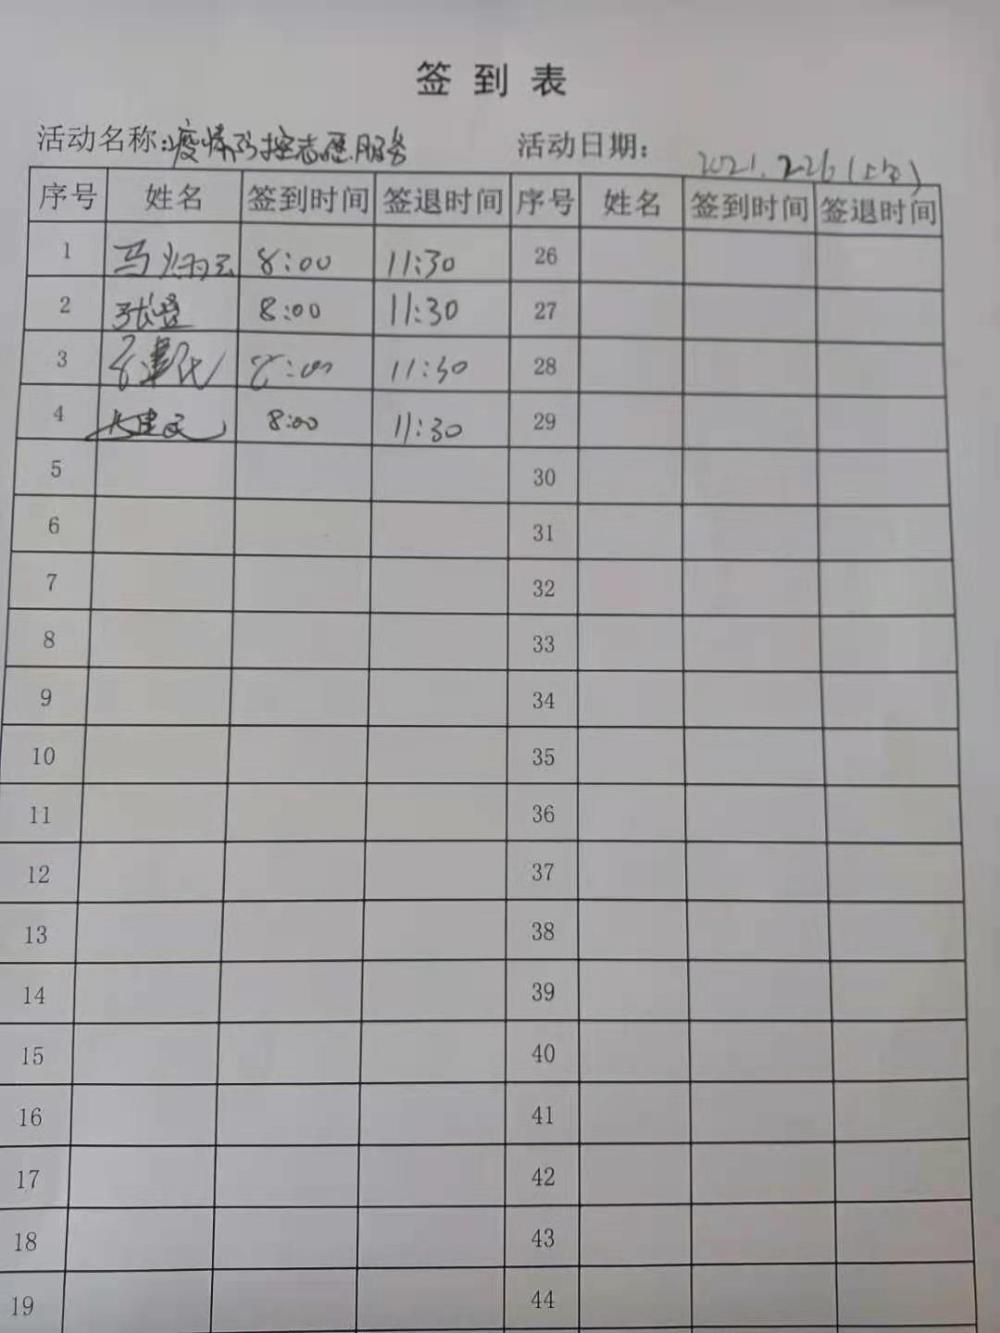 签到表
活动名称:疫情防控志愿服务 活动日期: 2021.2.26(上午)
序号 姓名 签到时间 签退时间 序号 姓名 签到时间 签退时间
1 马炳云 8:00 11:30 26
2 张登 8:00 11:30 27
3 8:00 11:30 28
4 8:00 11:30 29
5 30
6 31
7 32
8 33
9 34
10 35
11 36
12 37
13 38
14 39
15 40
16 41
17 42
18 43
19 44